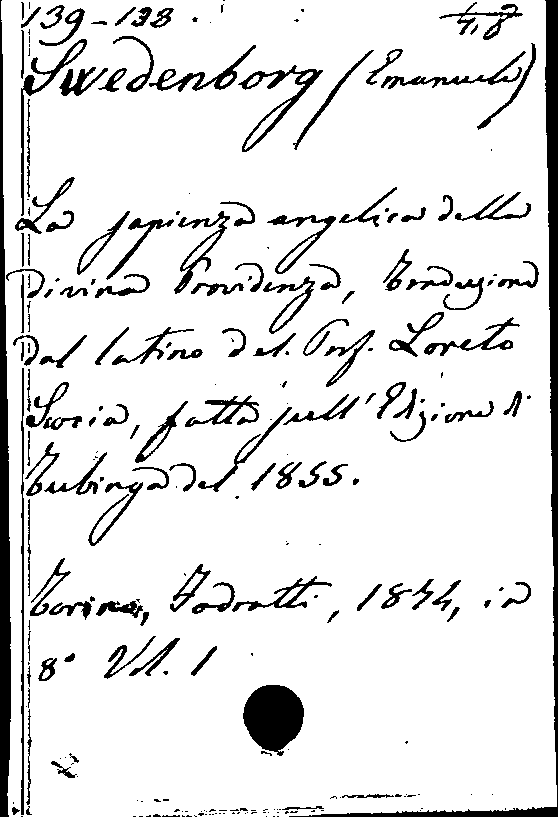 139-138.
Swedenborg (Emanuele)
La sapienza angelica della
divina Providenza, Traduzione
dal latino del. Prof. Loreto
Scocia, fatta sull'Edizione di
Tubinga del 1855.
Torino, Fodratti, 1874, in
8° Vol. 1